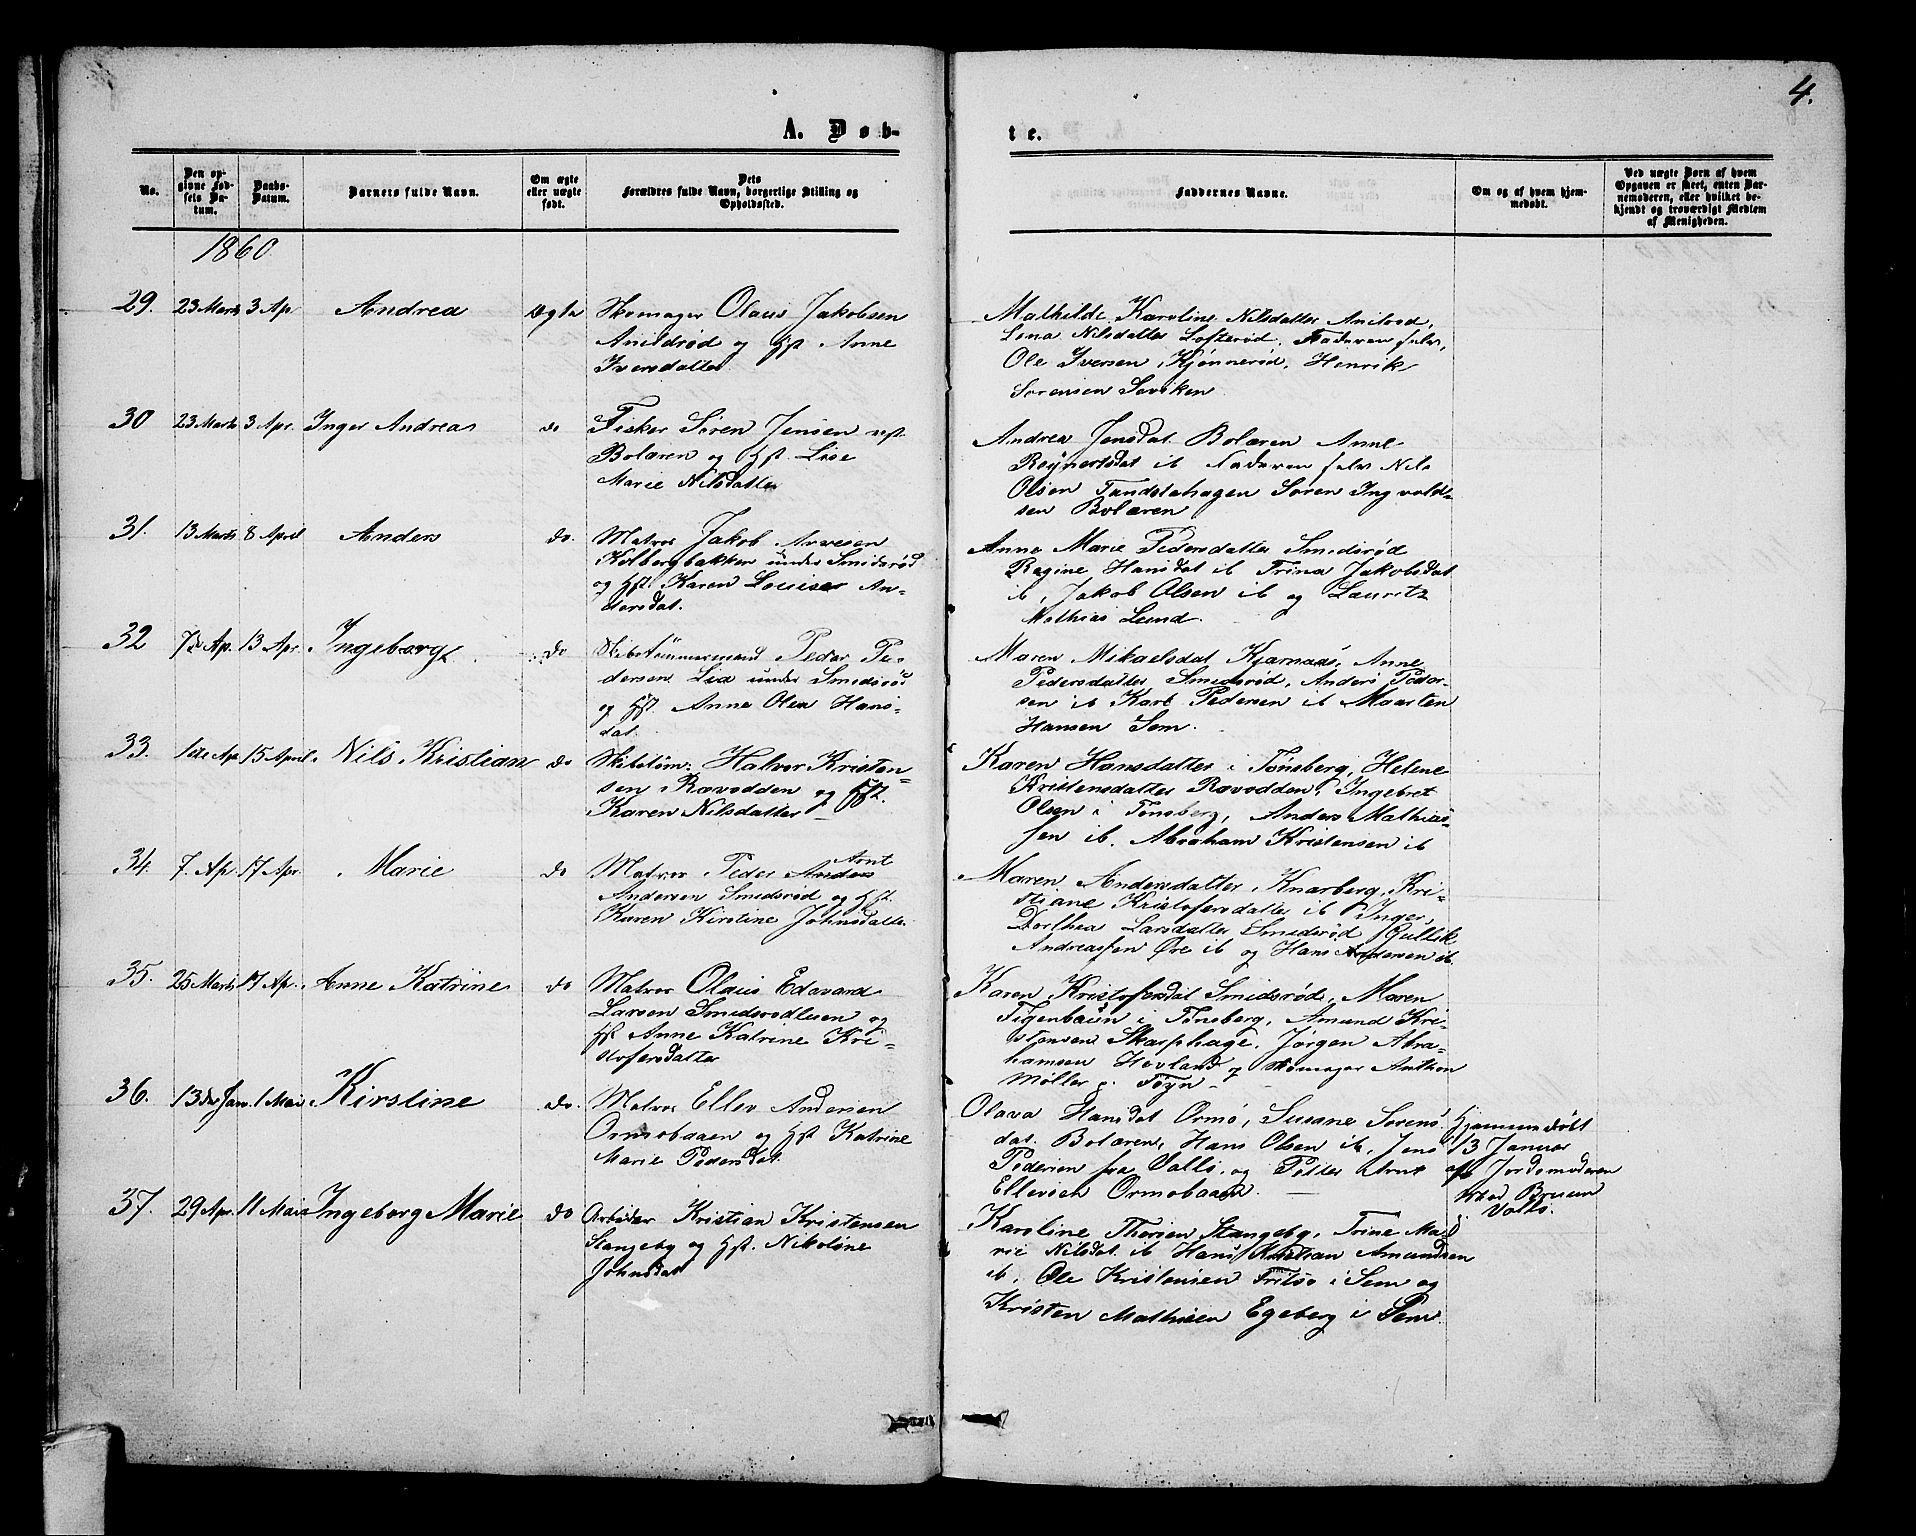 4.
A. Døb-
te.
No.
Den opgivne Fødsels Datum.
Daabs-Datum.
Barnets fulde Navn.
Om ægte eller uægte født.
Dets Forældres fulde Navn, borgerlige Stilling og Opholdssted.
Faddernes Navne.
Om og af hvem hjemmedøbt.
Ved uægte Børn af hvem Opgaven er skeet, enten Barnemoderen, eller hvilket bekjendt og troværdigt Medlem af Menigheden.
1860
29. 23 Marts 3 Ap Andrea Ægte Skomager Olaus Jakobsen
Anildrød og Hst. Anne
Iversdatter.
Mathilde Karoline Nilsdatter Anilrød,
Lena Nilsdatter Lofterød. Faderen selv,
Ole Iversen, Kjønnerød, Henrik
Sørensen Seviken
30 23 Marts 3 Apr. Inger Andrea do Fisker Søren Jensen
Bolæren og Hst. Lise
Marie Nilsdatter
Andrea Jensdat Bolæren Anne
Reynertsdat ib Faderen selv Nils
Olsen Søren Ingvold-
sen Bolæren
31. 13 Marts 8 April Anders do. Matros Jakob Arvesen
Kolbergbakken under Smidsrød
og Hst. Karen Louise An-
dersdat.
Anne Marie Pedersdatter Smidsrød
Ragine Hansdat ib Trina Jakobsdat
ib, Jakob Olsen ib og Lauritz
Mathias Lund.
32 7de Ap. 13 Apr. Ingeborg do Skibstømmermand Peder Pe-
dersen Lia under Smidsrød
og Hst. Anne Olea Hans-
dat.
Maren Mikaelsdat Kjærnaas, Anne
Pedersdatter Smidsrød, Anders Peder-
sen ib Karl Pedersen ib Maarten
Hansen Sem.
33. 1ste Ap. 15 April. Nils Kristian do Skibstøm: Halvor Kristen-
sen Rævodden og Hst.
Karen Nilsdatter
Karen Hansdatter i Tønsberg, Helene
Kristensdatter Rævodden, Ingebret
Olsen i Tønsberg, Anders Mathias-
sen ib. Abraham Kristensen ib
34. 7. Ap. 17 Apr. Marie do Matros Peder Anders
Arnt
Andersen Smidsrød og Hst.
Karen Kirstine Johnsdatter
Maren Andersdatter, Knarberg, Kri-
stiane Kristofersdatter ib Inger
Dorthea Larsdatter Smidsrød Gullik
Andreassen Øre ib og Hans Andersen ib.
35. 25 Marts 17 Ap. Anne Katrine do Matros Olaus Edavard
Larsen Smidsrødløsen og
Hst Anne Katrine Kri-
stofersdatter
Karen Kristofersdat Smidsrød, Maren
Figenbaun i Tønsberg, Amund Kri-
stensen Skarphage, Jørgen Abra-
hamsen Hovland og Skomager Anthon
Møller p. Føyn
36. 13de Jan. 1 Mai Kirstine do. Matros Ellev Andersen
Ormøbaaen og Hst Katrine
Marie Pedersdat.
Olava Hansdat Ormø, Susane Sørens-
dat. Bolæren, Hans Olsen ib, Jens
Pedersen fra Vallø, og Petter Arnt
Ellevsen Ormøbaaen.
Hjemmedøbt
13 Januar
af Jordemoderen
Bruun
Vallø.
37. 29 Apr. 11 Mai Ingeborg Marie do Arbeider Kristian Kristensen
Stangeby og Hst. Nikoline
Johnsdat
Karoline Thorsen Stangeby, Trine Ma-
rie Nilsdat. ib Hans Kristian Amundsen
ib. Ole Kristensen Fritsø i Sem og
Kristen Mathisen Egeberg i Sem.